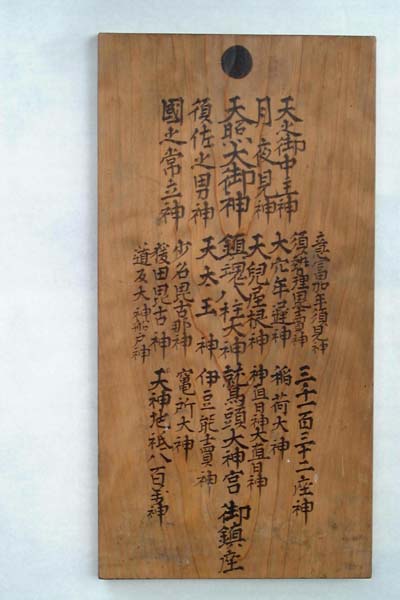 天之御中主神
月夜見神
天照大御神
須佐之男神
國之常立神
意富加牟須見神
須勢理毘賣神
大穴牟遅神
天兒屋根神
鎮魂八柱大神
天太玉神
少名毘古那神
猿田毘古神
道反大神船戸神
三千一百三十二座神
稲荷大神
神直日神大直日神
鷲頭大神宮 御鎮座
伊豆能賣神
竈所大神
天神地祇八百萬神